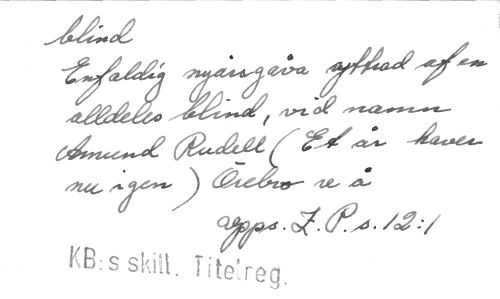 blind
Enfaldig nyårsgåva yttrad af en
alldeles blind, vid namn
Amund Rudell (Et år haver
nu igen) Örebro u å
upps. Z. P. s. 12:1
KB:s skill. Titelreg.